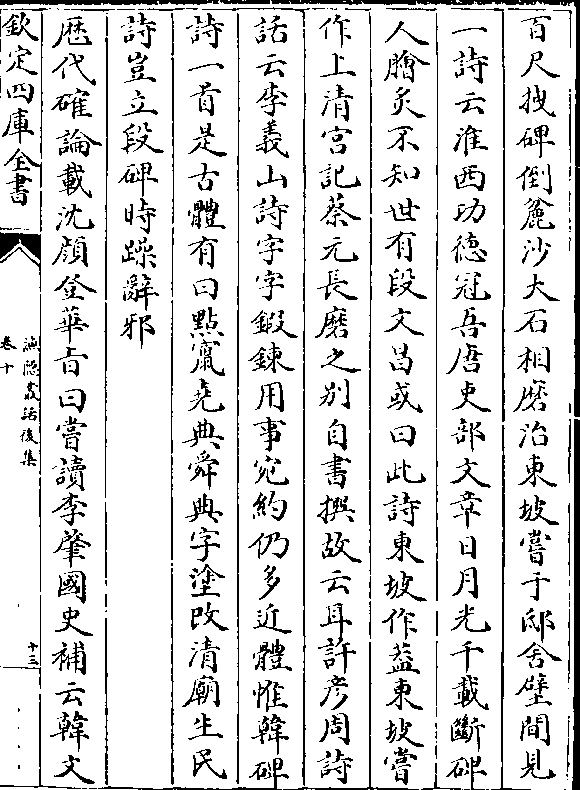 百尺拽碑倒麄沙大石相磨治東坡嘗于邸舍壁間見
一詩云淮西功德冠吾唐吏部文章日月光千載斷碑
人膾炙不知世有段文昌或曰此詩東坡作葢東坡嘗
作上清宮記蔡元長磨之别自書撰故云耳許彦周詩
話云李義山詩字字鍛鍊用事宛約仍多近體惟韓碑
詩一首是古體有曰點竄堯典舜典字塗改清廟生民
詩豈立段碑時躁辭邪
歴代確論載沈顔登華旨曰嘗讀李肇國史補云韓文
欽定四庫全書
漁隱叢話後集
卷十
十三